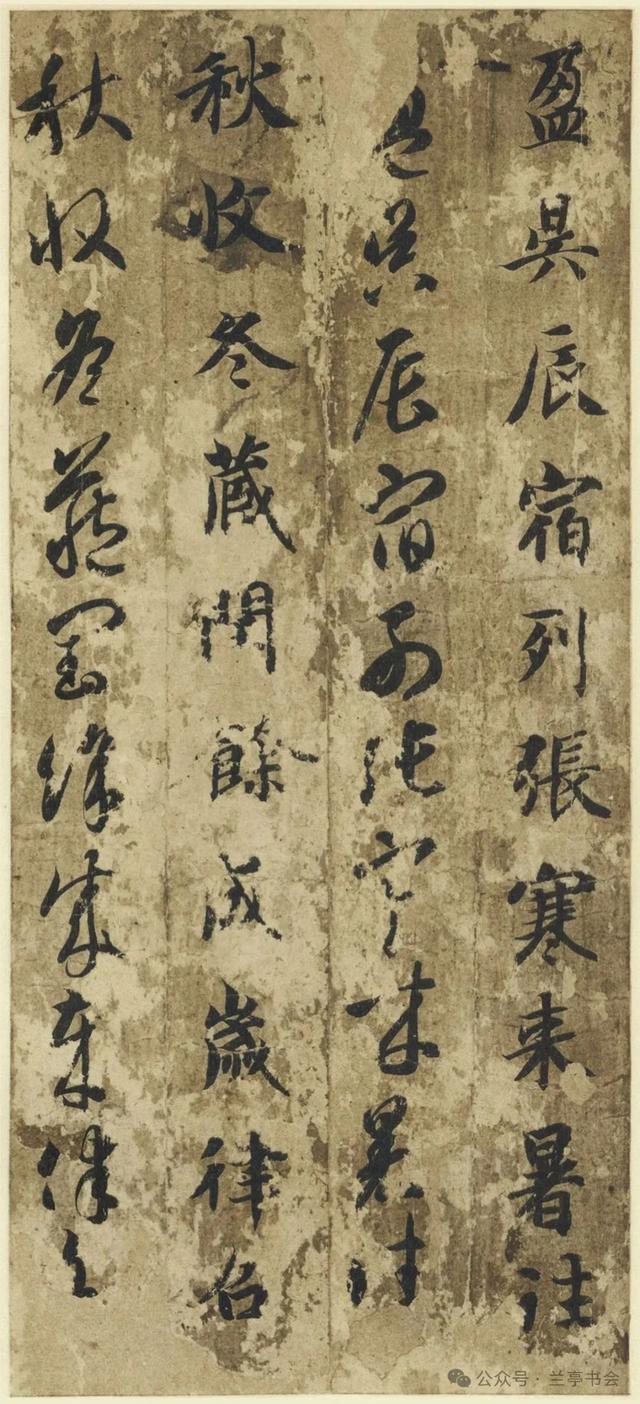 盈昃辰宿列張寒来暑往
盈昃辰宿列張寒来暑往
秋收冬藏閏餘成歲律召
秋收冬藏閏餘成歲律召
公众号·兰亭书会